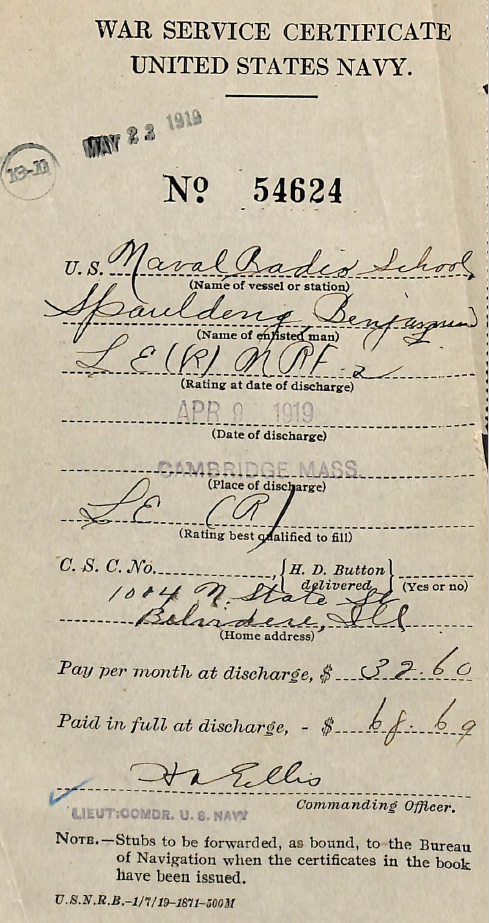 WAR SERVICE CERTIFICATE
UNITED STATES NAVY.
MAY 23 1919
No 54624
U.S. Naval Radio School
(Name of vessel or station)
Spaulding Benjamin
(Name of enlisted man)
LE (R) NRF. 2
(Rating at date of discharge)
APR 9 1919
(Date of discharge)
CAMBRIDGE MASS.
(Place of discharge)
LE (R)
(Rating best qualified to fill)
C. S. C. No. , { H. D. Button delivered } (Yes or no)
1004 N. State St
Belvidere, Ill
(Home address)
Pay per month at discharge, $ 32.60
Paid in full at discharge, - $ 68.69
Ellis
Commanding Officer.
LIEUT: COMDR. U. S. NAVY
NOTE.—Stubs to be forwarded, as bound, to the Bureau
of Navigation when the certificates in the book
have been issued.
U.S.N.R.B.-1/7/19-1871-500M